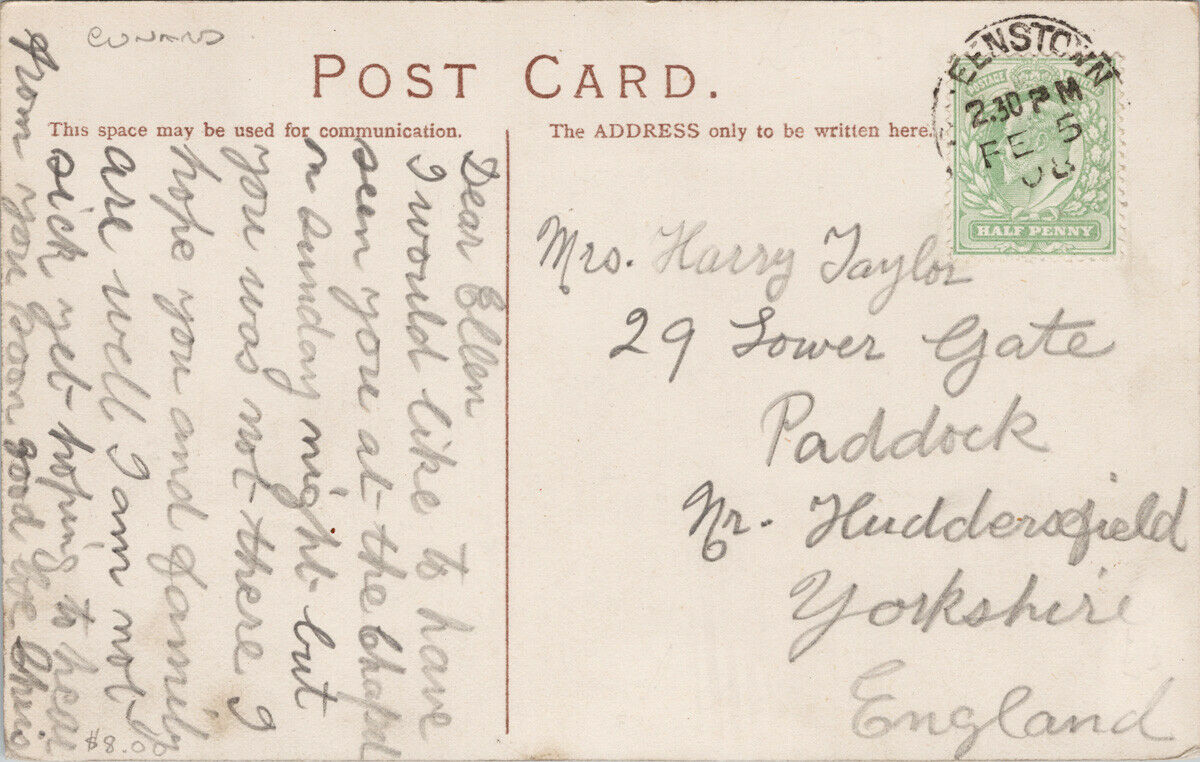 CUNARD
POST CARD.
This space may be used for communication.
The ADDRESS only to be written here.
EENSTOWN
2.30 PM
FE 5
08
POSTAGE
HALF PENNY
Dear Ellen
I would like to have
seen you at the Chapel
on Sunday night but
you was not there I
hope you and family
are well I am not
sick yet hoping to hear
from you soon good bye Chris
Mrs. Harry Taylor
29 Lower Gate
Paddock
Nr. Huddersfield
Yorkshire
England
$8.00